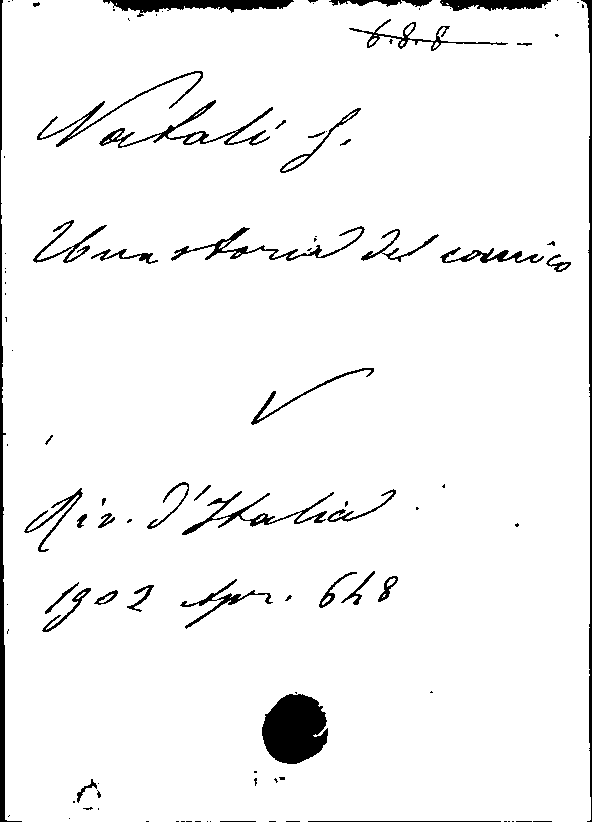 6.8.8
Natali G.
Una storia del comico
Riv. d'Italia
1902 Apr. 648